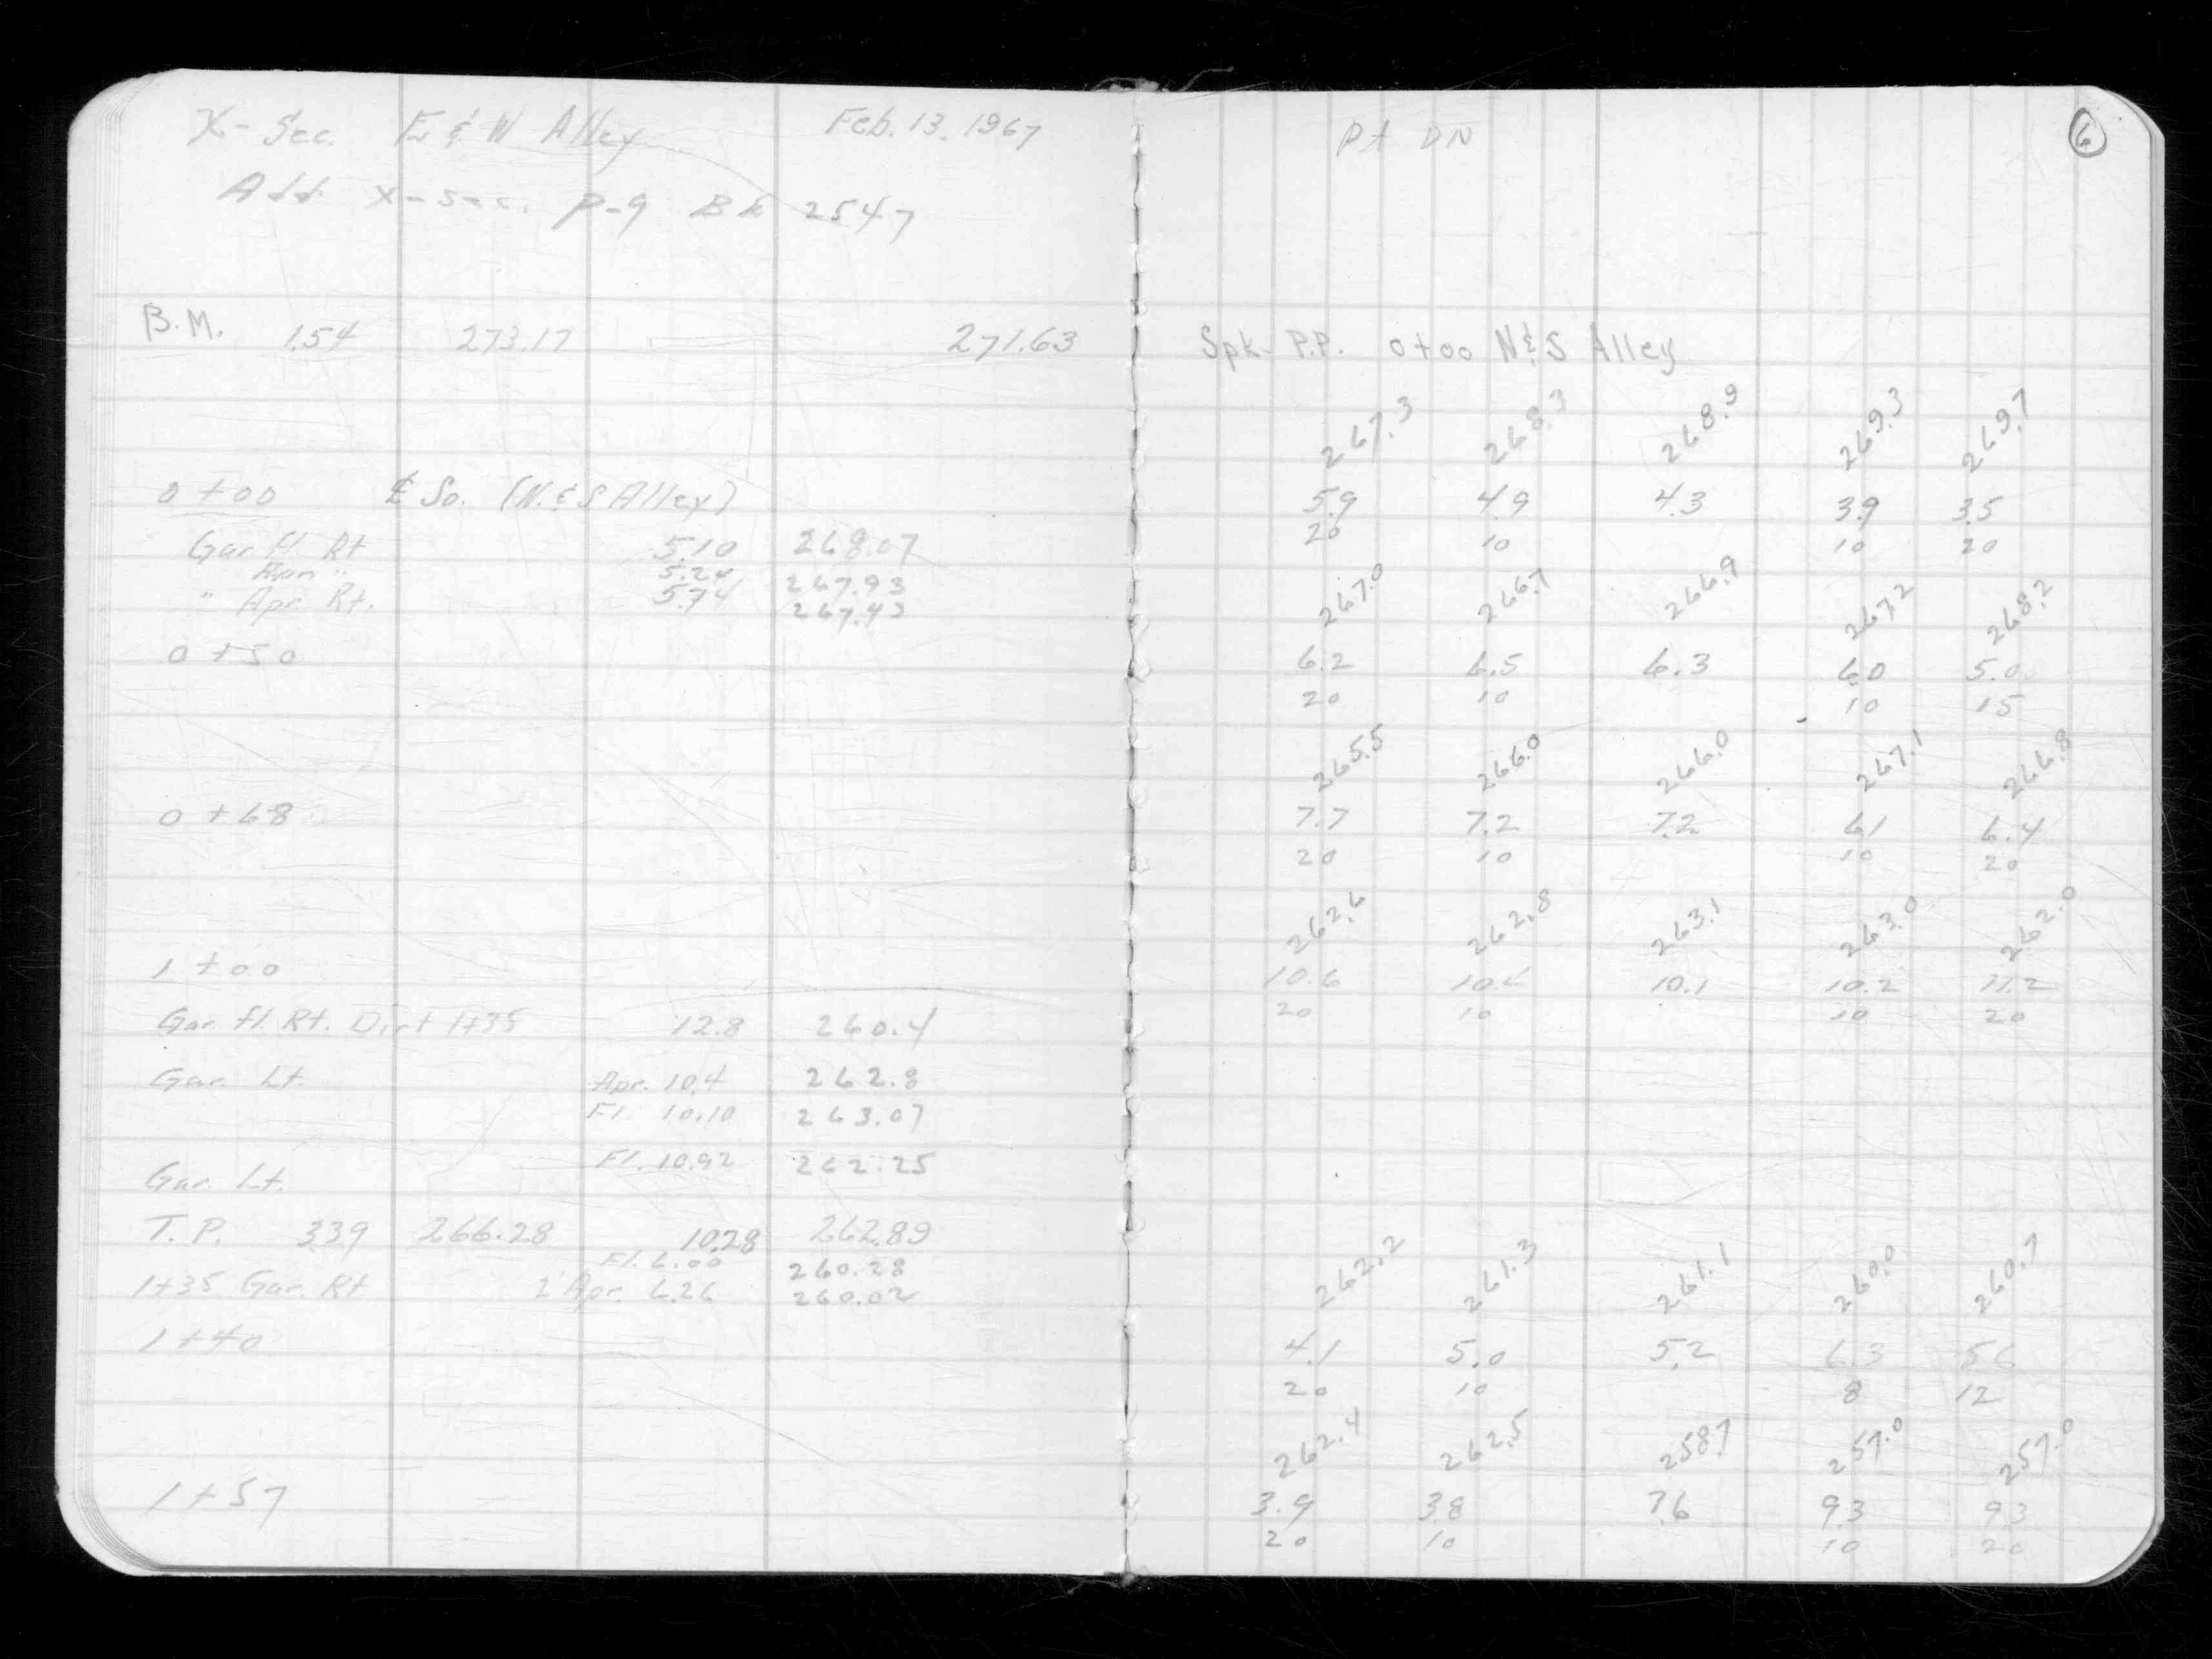 X-Sec. E & W Alley Feb. 13. 1967
Add. X-sec. P-9 Bk 2547
B.M. 1.54 273.17 271.63
0+00 ₵ So. (N. & S Alley)
Gar. fl. Rt 5.10 268.07
Apr. " 5.24 267.93
" Apr. Rt. 5.74 267.43
0+50
0+68
1+00
Gar. fl. Rt. Dirt 1+35 12.8 260.4
Gar. Lt. Apr. 10.4 262.8
Fl. 10.10 263.07
Fl. 10.92 262.25
Gar. Lt.
T.P. 3.39 266.28 10.28 262.89
Fl. 6.00 260.28
1+35 Gar. Rt 2' Apr. 6.26 260.02
1+40
1+57
Pt DN
6
Spk. P.P. 0+00 N & S Alley
267.3 268.3 268.9 269.3 269.7
5.9 4.9 4.3 3.9 3.5
20 10 10 20
267.0 266.7 266.9 267.2 268.2
6.2 6.5 6.3 6.0 5.0
20 10 10 15
265.5 266.0 266.0 267.1 266.8
7.7 7.2 7.2 6.1 6.4
20 10 10 20
262.6 262.8 263.1 263.0 262.0
10.6 10.4 10.1 10.2 11.2
20 10 10 20
262.2 261.3 261.1 260.0 260.7
4.1 5.0 5.2 6.3 5.6
20 10 8 12
262.4 262.5 258.7 257.0 257.0
3.9 3.8 7.6 9.3 9.3
20 10 10 20